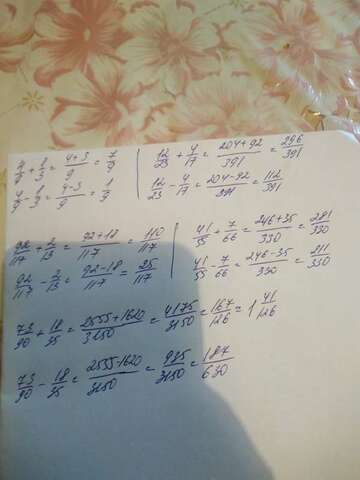 4/9 + 1/3 = (4+3)/9 = 7/9
4/9 - 1/3 = (4-3)/9 = 1/9
12/23 + 4/17 = (204+92)/391 = 296/391
12/23 - 4/17 = (204-92)/391 = 112/391
92/117 + 2/13 = (92+18)/117 = 110/117
92/117 - 2/13 = (92-18)/117 = 25/117
41/55 + 7/66 = (246+35)/330 = 281/330
41/55 - 7/66 = (246-35)/330 = 211/330
73/90 + 18/35 = (2555+1620)/3150 = 4175/3150 = 167/126 = 1 41/126
73/90 - 18/35 = (2555-1620)/3150 = 935/3150 = 187/630